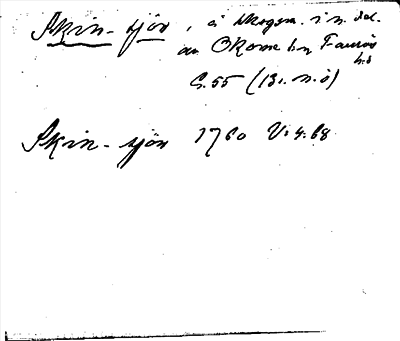 Skin-sjön, å skogsm. i n. del.
av Okome by, Faurås
h:d
G.55 (13. n.ö)
Skin-sjön 1760 V:4:68